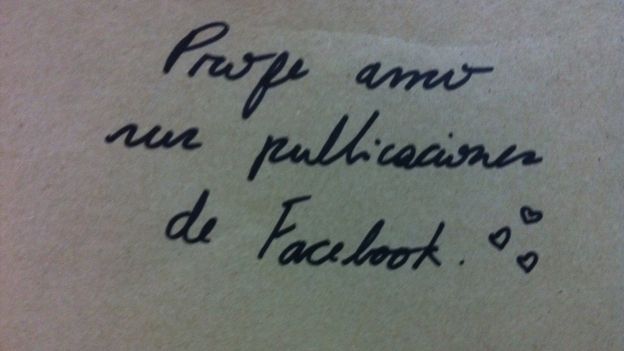 Profe amo
sus publicaciones
de Facebook.